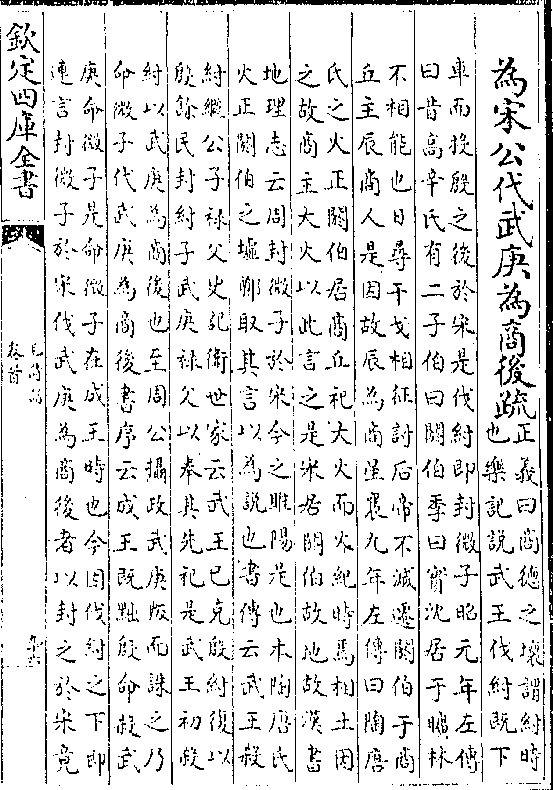 為宋公代武庚為商後疏正義曰商德之壞謂紂時
也樂記說武王伐紂既下
車而投殷之後於宋是伐紂即封微子昭元年左傳
曰昔高辛氏有二子伯曰閼伯季曰實沈居于曠林
不相能也日尋干戈相征討后帝不臧遷閼伯于商
丘主辰商人是因故辰為商星襄九年左傳曰陶唐
氏之火正閼伯居商丘祀大火而火紀時焉相土因
之故商主大火以此言之是宋居閼伯故地故漢書
地理志云周封微子於宋今之睢陽是也本陶唐氏
火正閼伯之墟鄭取其言以為說也書傳云武王殺
紂繼公子禄父史記衛世家云武王已克殷紂復以
殷餘民封紂子武庚禄父以奉其先祀是武王初殺
紂以武庚為商後也至周公攝政武庚叛而誅之乃
命微子代武庚為商後書序云成王既黜殷命殺武
庚命微子是命微子在成王時也今因伐紂之下即
連言封微子於宋代武庚為商後者以封之於宋竟
欽定四庫全書
毛詩注疏
卷首